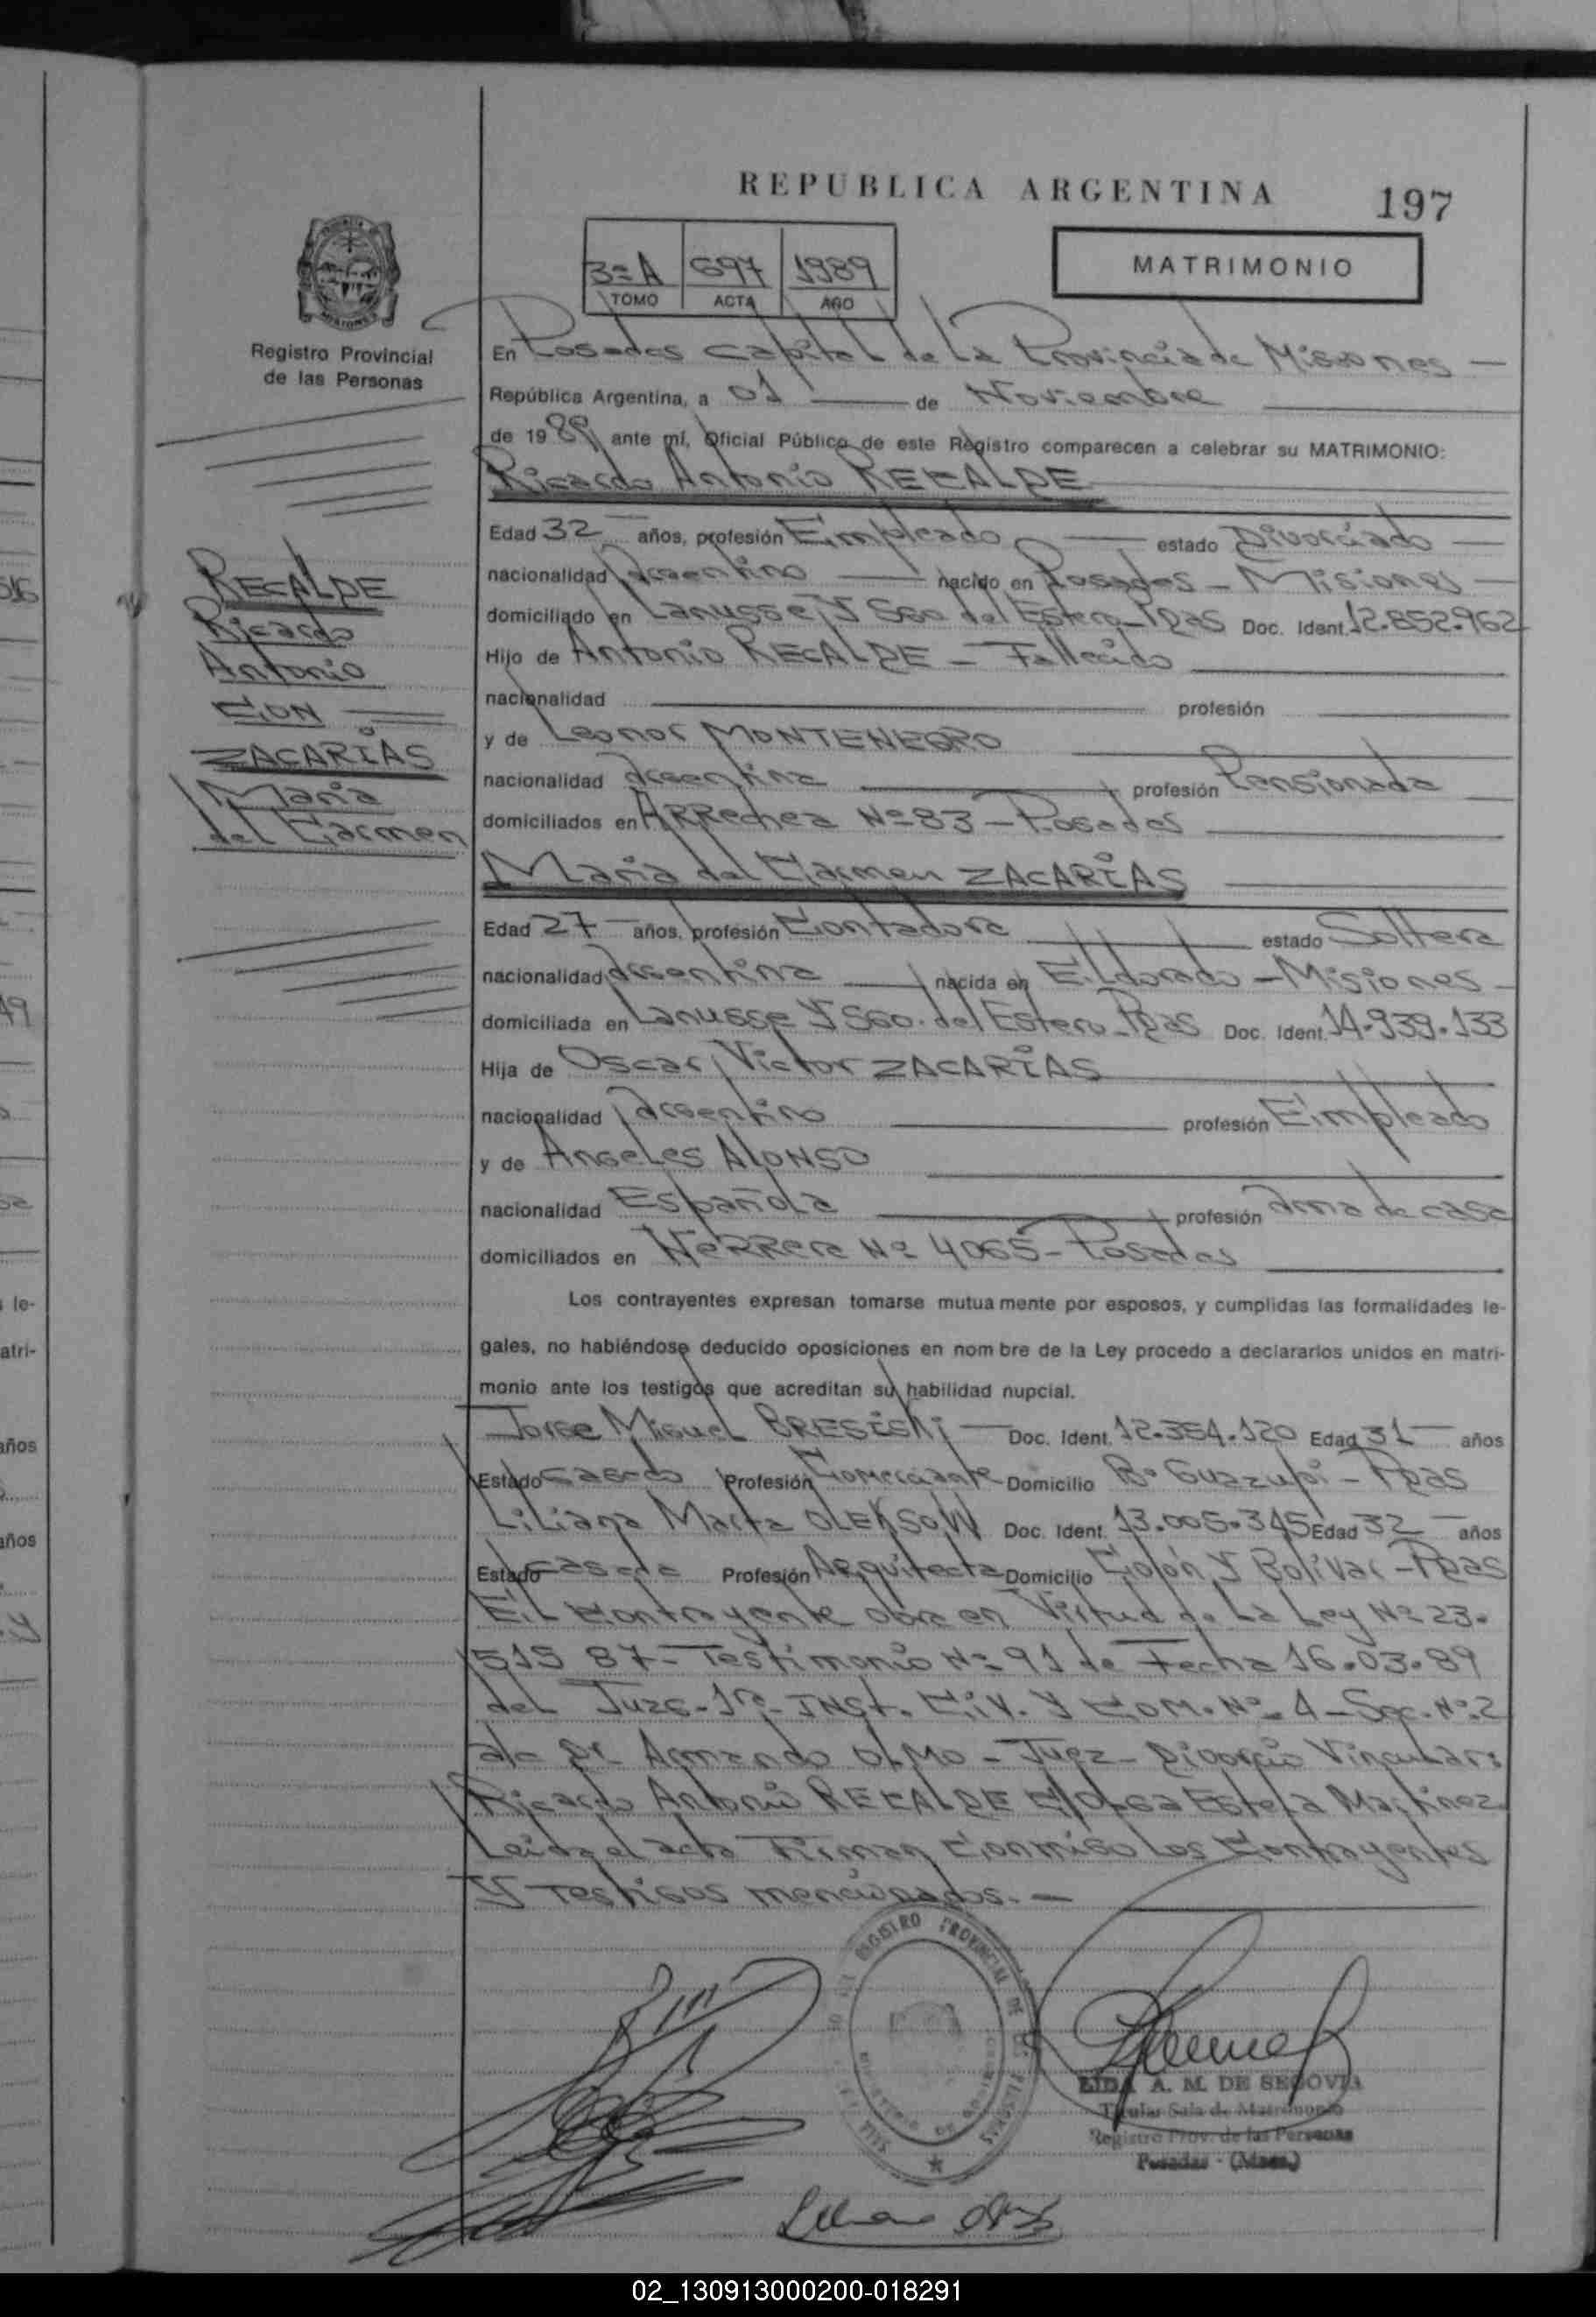 REPUBLICA ARGENTINA
197
3=A 697 1989
TOMO ACTA AÑO
MATRIMONIO
Registro Provincial
de las Personas
En Posadas capital de La Provincia de Misiones —
República Argentina, a 01 — de Noviembre
de 1989 ante mí, Oficial Público de este Registro comparecen a celebrar su MATRIMONIO:
Ricardo Antonio RECALDE
Edad 32 años, profesión Empleado — estado Divorciado —
nacionalidad Argentino — nacido en Posadas - Misiones —
domiciliado en Lanusse Y Sgo del Estero - Pdas Doc. Ident. 12.852.962
Hijo de Antonio RECALDE - Fallecido
nacionalidad — profesión —
y de Leonor MONTENEGRO
nacionalidad Argentina — profesión Pensionada
domiciliados en ARRechea Nº 83 - Posadas
María del Carmen ZACARÍAS
Edad 27 años, profesión Contadora — estado Soltera
nacionalidad Argentina — nacida en Eldorado - Misiones
domiciliada en Lanusse Y Sgo. del Estero - Pdas Doc. Ident. 14.939.133
Hija de Oscar Victor ZACARÍAS
nacionalidad Argentino — profesión Empleado
y de Angeles ALONSO
nacionalidad Española — profesión Ama de casa
domiciliados en HeRRera Nº 4065 - Posadas
Los contrayentes expresan tomarse mutuamente por esposos, y cumplidas las formalidades le-
gales, no habiéndose deducido oposiciones en nombre de la Ley procedo a declararlos unidos en matri-
monio ante los testigos que acreditan su habilidad nupcial.
Jorge Miguel BRESISKI — Doc. Ident. 12.354.120 Edad 31 — años
Estado casado Profesión Comerciante Domicilio Bº Guazupi - Pdas
Liliana Marta OLEKSOW Doc. Ident. 13.005.345 Edad 32 — años
Estado casada Profesión Arquitecta Domicilio Colón Y Bolívar - Pdas
El Contrayente obra en Virtud de La Ley Nº 23.
515 87 - Testimonio Nº 91 de Fecha 16.03.89
del Juzg. 1ra INST. Civ. Y Com. Nº 4 - Sec. Nº 2
a/c Dr. Armando OLMO - Juez - Divorcio Vincular:
Ricardo Antonio RECALDE C/Olga Estela Martinez
Leida el acta Firman Conmigo Los Contrayentes
Y Testigos mencionados. —
RECALDE
Ricardo
Antonio
CON
ZACARÍAS
María
del Carmen
REGISTRO PROVINCIAL DE LAS PERSONAS
LIDA A. M. DE SEGOVIA
Titular Sala de Matrimonio
Registro Prov. de las Personas
Posadas - (Mnes.)
516
le-
atri-
años
años
02_130913000200-018291